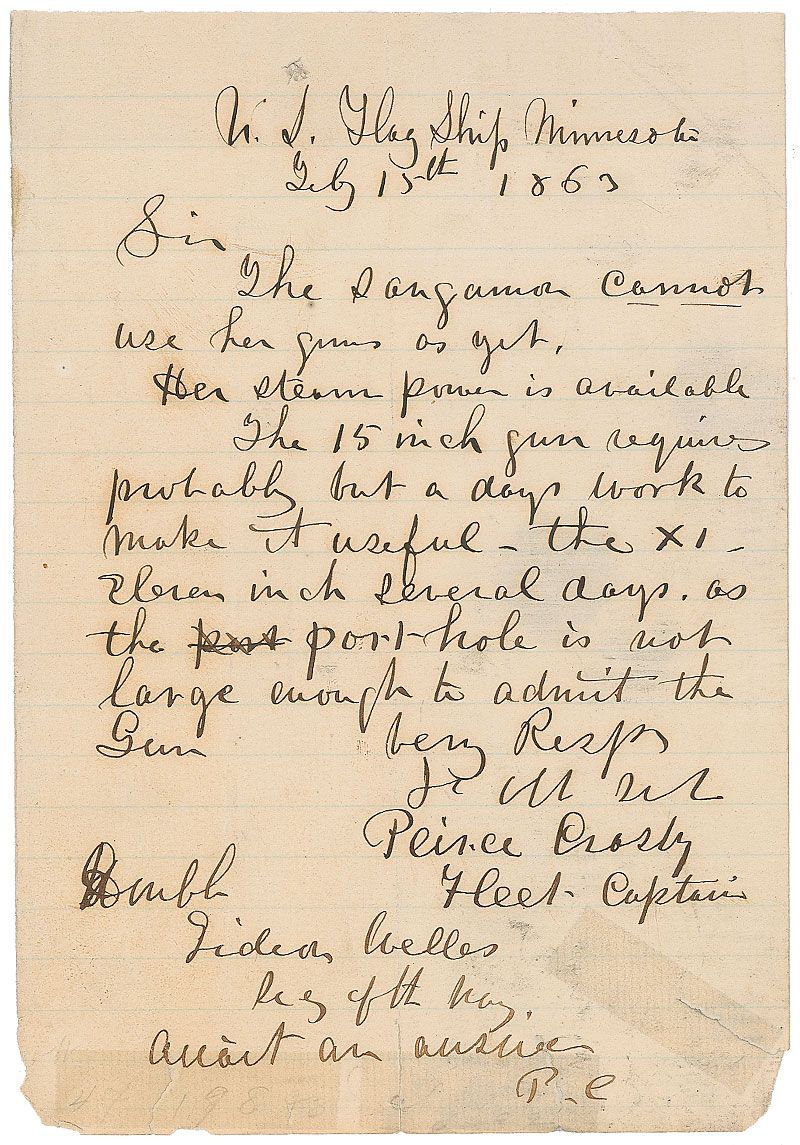 U. S. Flag Ship Minnesota
Feby 15th 1863
Sir
The Sangamon cannot
use her guns as yet.
Her steam power is available
The 15 inch gun requires
probably but a days work to
make it useful - the XI -
Eleven inch several days. as
the port port-hole is not
large enough to admit the
Gun very Resply
Yr obt srt
Peirce Crosby
Honble Fleet Captain
Gideon Welles
Secy of th Navy
Await an answer
P. C